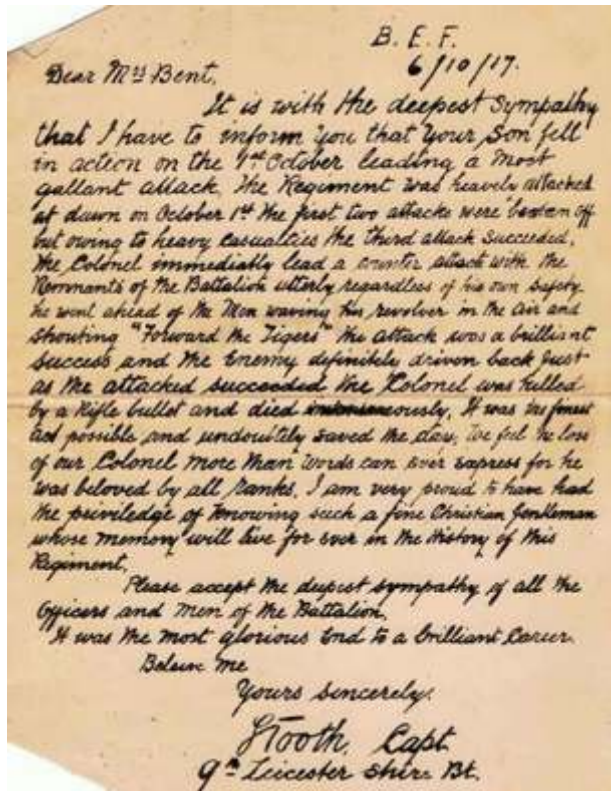 B. E. F.
6/10/17.
Dear Mrs Bent.
It is with the deepest sympathy
that I have to inform you that your Son fell
in action on the 1st October leading a most
gallant attack, the Regiment was heavely attacked
at dawn on October 1st the first two attacks were beaten off
but owing to heavy casualties the third attack succeeded,
the Colonel immediatly lead a counter attack with the
Remnants of the Battalion utterly regardless of his own safety.
he went ahead of the Men waving his revolver in the air and
shouting "Forward the Tigers" the attack was a brilliant
success and the Enemy definitely driven back just
as the attacked succeeded the Colonel was killed
by a Rifle bullet and died. It was the finest
act possible and undoubtely saved the day, we feel the loss
of our Colonel more than words can ever express for he
was beloved by all ranks. I am very proud to have had
the priviledge of knowing such a fine Christian Gentleman
whose memory will live for ever in the History of this
Regiment.
Please accept the deepest sympathy of all the
Officers and men of the Battalion.
It was the most glorious End to a brilliant Career.
Beleive Me
Yours sincerely.
Tooth. Capt.
9th Leicester Shire Bt.